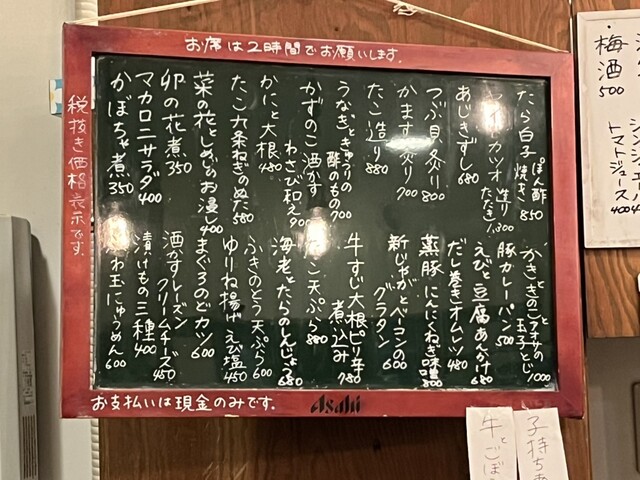 お席は2時間でお願いします。
税抜き価格表示です。
たら白子 ぽん酢 焼き 850
カツオ 造り たたき 1,300
あじきずし 680
つぶ貝炙り 800
かます炙り 700
たこ造り 880
うなぎときゅうりの酢のもの 700
かずのこ酒かす わさび和え 900
かにと大根 480
たこ九条ねぎのぬた 580
菜の花としめじのお浸し 400
卯の花煮 350
マカロニサラダ 400
かぼちゃ煮 350
かきときのこ 玉子とじ 1000
豚カレーパン 500
えびと豆腐あんかけ 680
だし巻きオムレツ 480
蒸豚 にんにくねぎ味噌 800
新じゃがとベーコンの グラタン 600
牛すじ大根ピリ辛 煮込み 780
たこ天ぷら 880
海老とたらのしんじょう 680
ふきのとう天ぷら 600
ゆりね揚げ えび塩 450
まぐろのどカツ 600
酒かすレーズン クリームチーズ 450
漬けもの三種 400
玉にゅうめん 600
お支払いは現金のみです。
Asahi
梅酒 500
トマトジュース 400
子持ち
牛とごぼう